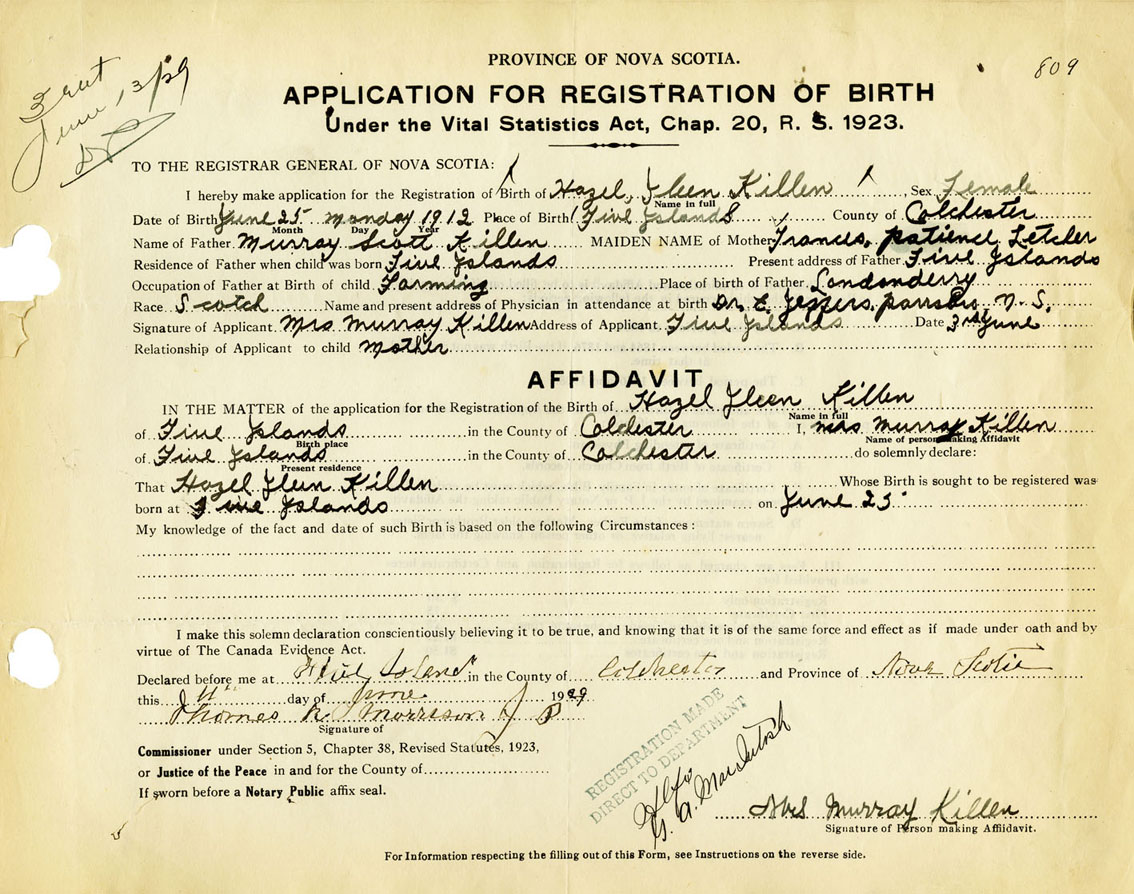 PROVINCE OF NOVA SCOTIA.
809
June, 3/29
APPLICATION FOR REGISTRATION OF BIRTH
Under the Vital Statistics Act, Chap. 20, R. S. 1923.
TO THE REGISTRAR GENERAL OF NOVA SCOTIA:
I hereby make application for the Registration of Birth of Hazel Ileen Killen, Sex Female
Name in full
Date of Birth June 25 monday 1912 Place of Birth Five Islands County of Colchester
Month Day Year
Name of Father Murray Scott Killen MAIDEN NAME of Mother Francis patience Letcher
Residence of Father when child was born Five Islands Present address of Father Five Islands
Occupation of Father at Birth of child Farming Place of birth of Father Londonderry
Race Scotch Name and present address of Physician in attendance at birth Dr. E. Jeppers, parrsboro N. S.
Signature of Applicant Mrs Murray Killen Address of Applicant Five Islands Date 3rd June
Relationship of Applicant to child Mother
AFFIDAVIT
IN THE MATTER of the application for the Registration of the Birth of Hazel Ileen Killen
Name in full
of Five Islands in the County of Colchester I, mrs Murray Killen
Birth place Name of person making Affidavit
of Five Islands in the County of Colchester do solemnly declare:
Present residence
That Hazel Ileen Killen Whose Birth is sought to be registered was
born at Five Islands on June 25
My knowledge of the fact and date of such Birth is based on the following Circumstances:
I make this solemn declaration conscientiously believing it to be true, and knowing that it is of the same force and effect as if made under oath and by
virtue of The Canada Evidence Act.
Declared before me at Five Islands in the County of Colchester and Province of Nova Scotia
this day of June 1929
Thomas R Morrison J P
Signature of
Commissioner under Section 5, Chapter 38, Revised Statutes, 1923,
or Justice of the Peace in and for the County of
If sworn before a Notary Public affix seal.
REGISTRATION MADE
DIRECT TO DEPARTMENT
G. A. MacIntosh
Mrs Murray Killen
Signature of Person making Affidavit.
For Information respecting the filling out of this Form, see Instructions on the reverse side.